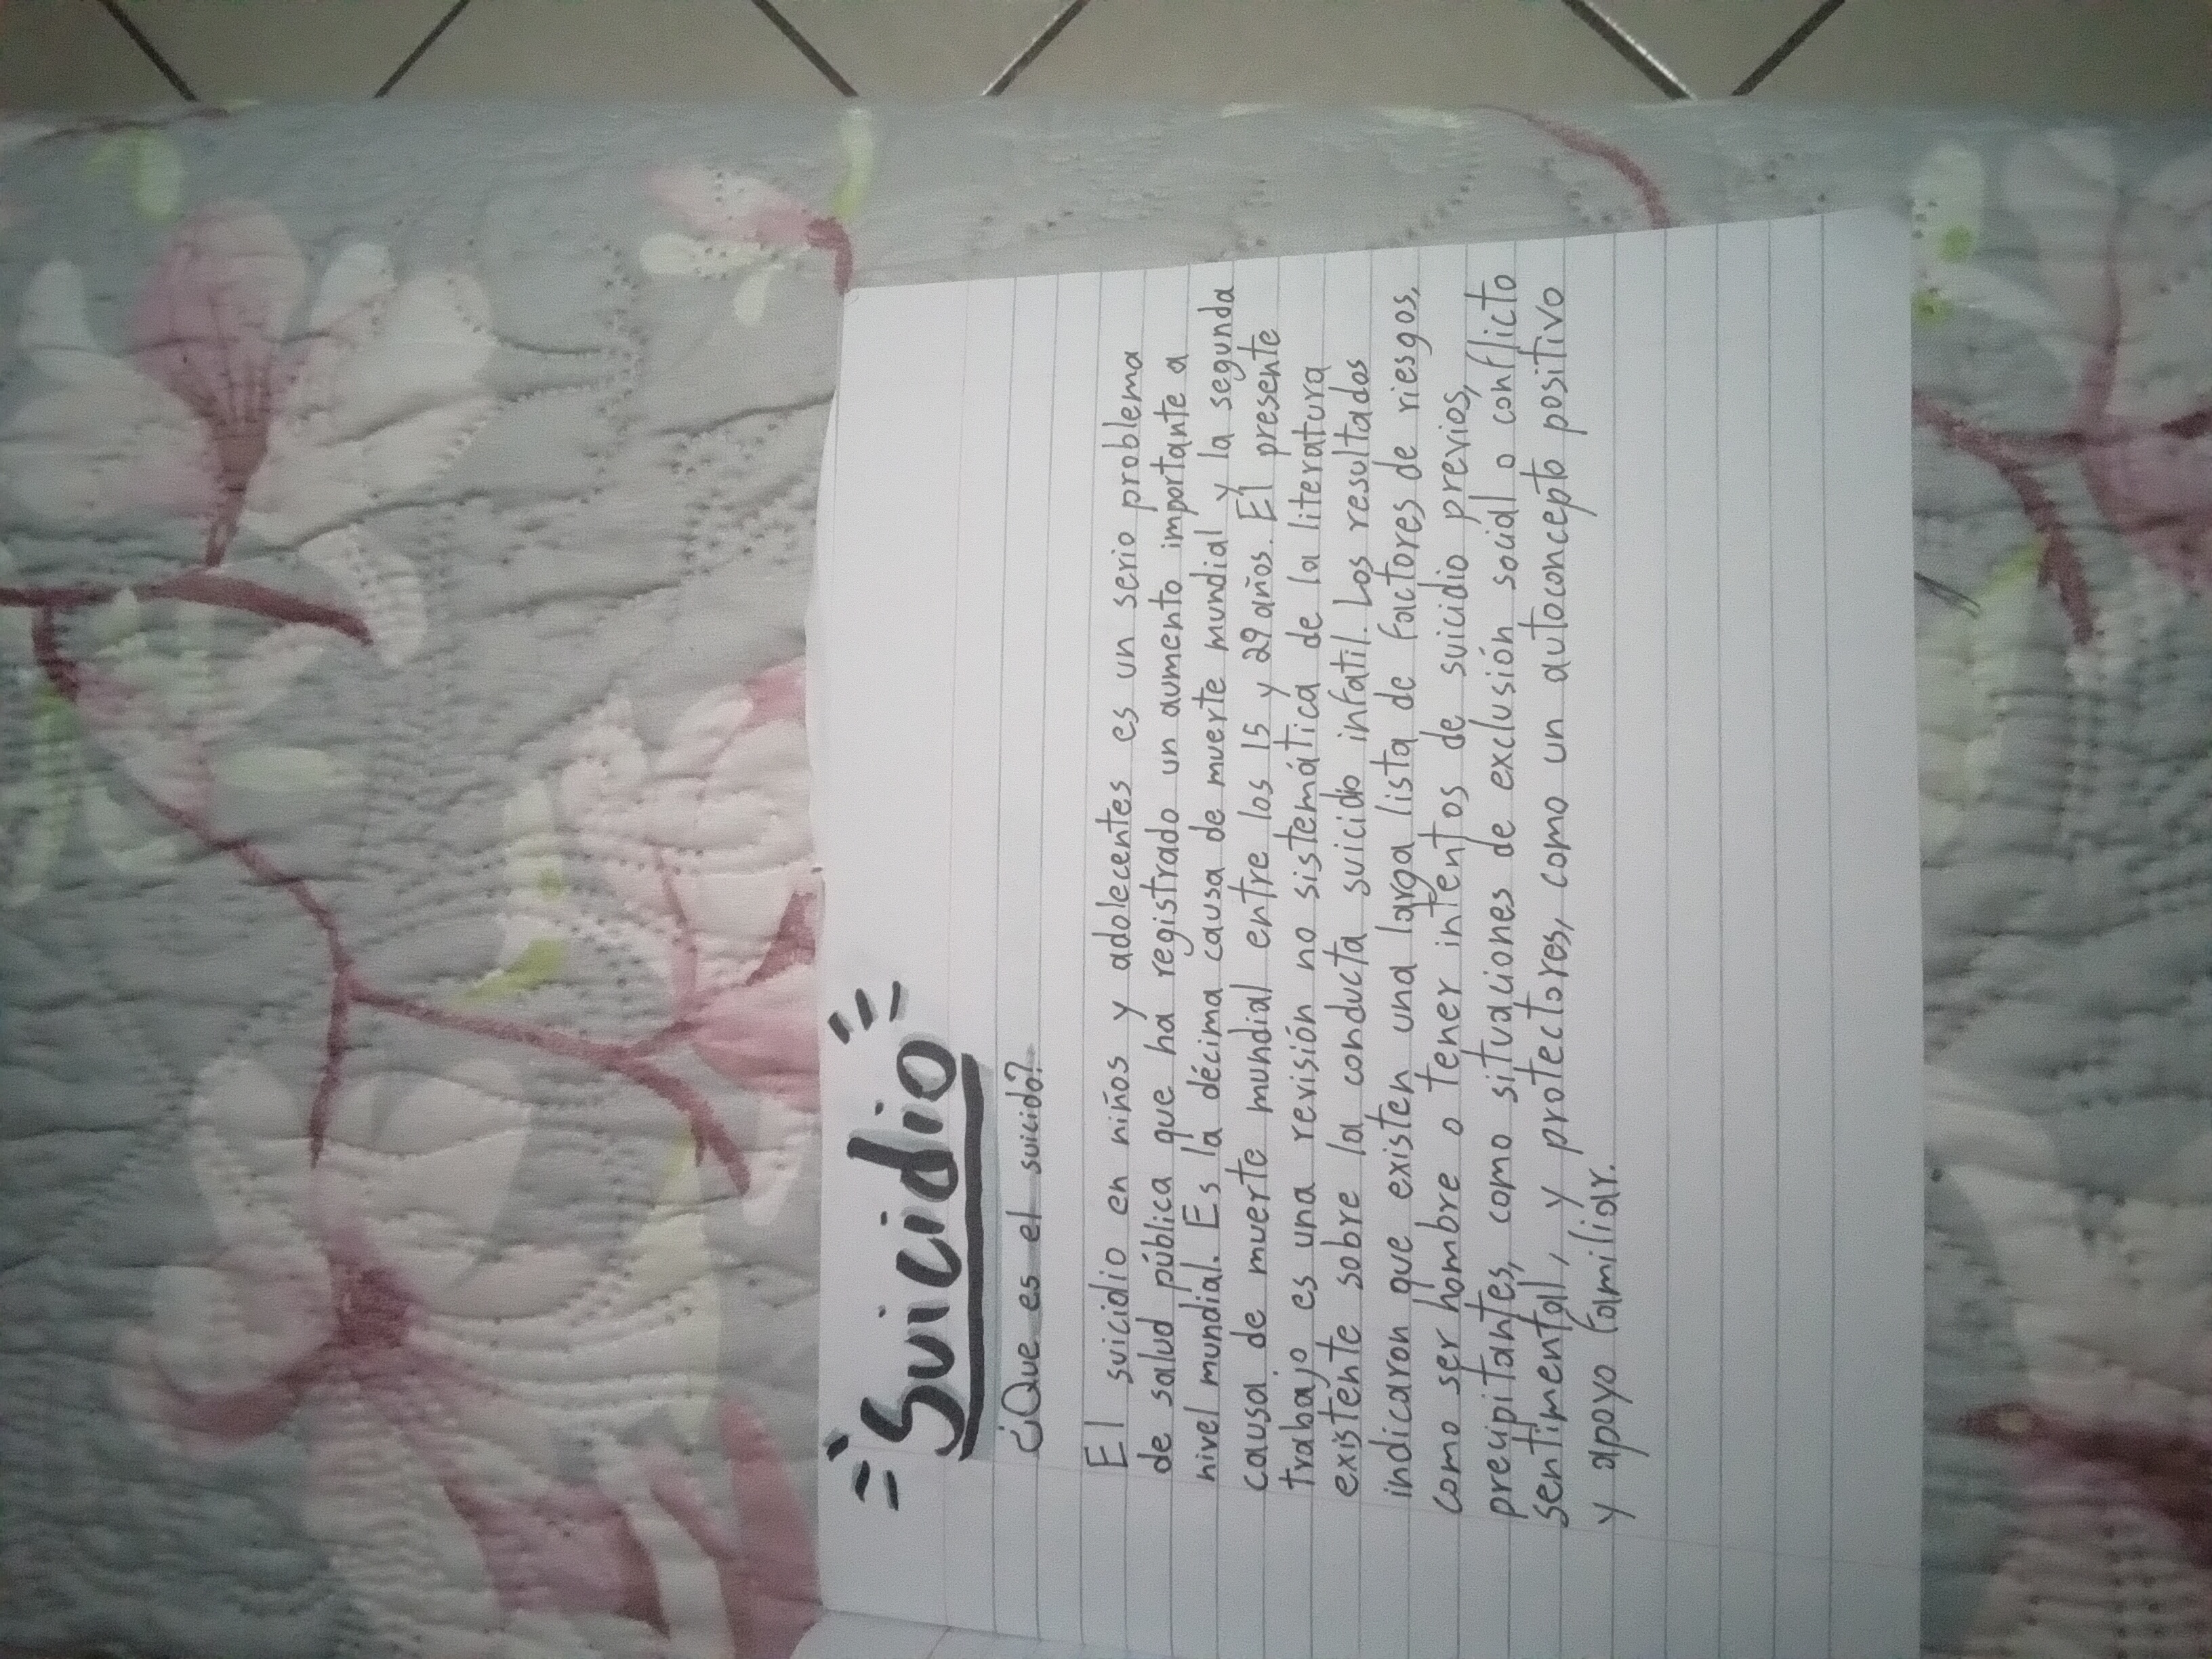 Suicidio
¿Que es el suicido?
El suicidio en niños y adolecentes es un serio problema
de salud pública que ha registrado un aumento importante a
nivel mundial. Es la décima causa de muerte mundial y la segunda
causa de muerte mundial entre los 15 y 29 años. El presente
trabajo es una revisión no sistemática de la literatura
existente sobre la conducta suicidio infatil. Los resultados
indicaron que existen una larga lista de factores de riesgos,
como ser hombre o tener intentos de suicidio previos,
precipitantes, como situaciones de exclusión social o conflicto
sentimental, y protectores, como un autoconcepto positivo
y apoyo familiar.